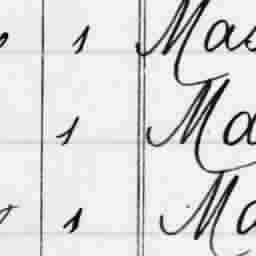 1 Mas
1 Ma
1 Ma